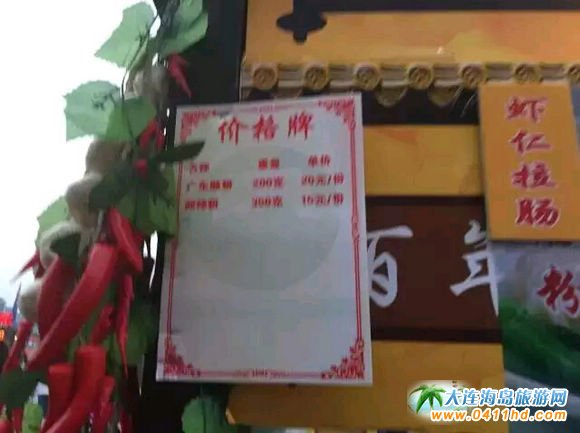 价格牌
名称 重量 单价
广东肠粉 200克 20元/份
酸辣粉 350克 15元/份
虾仁拉肠
百年
粉
大连海岛旅游网
www.0411hd.com